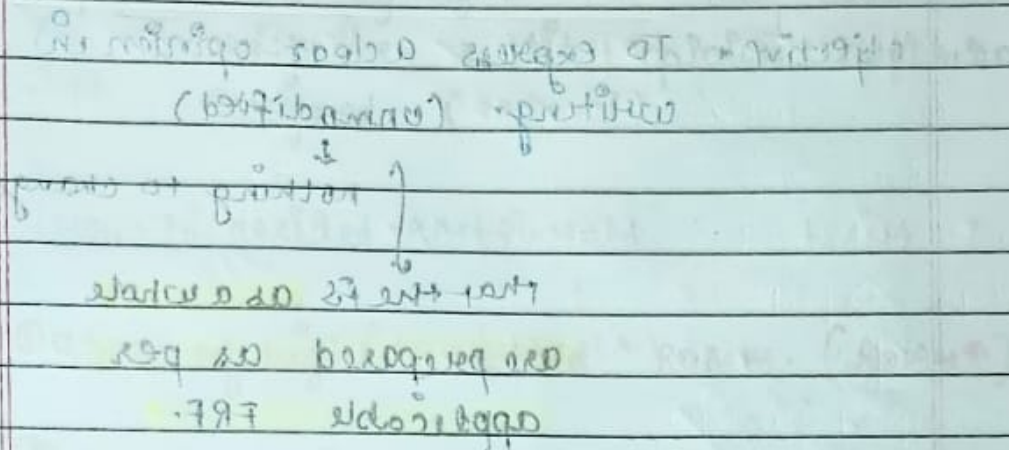 objective - To express a clear opinion in
writing - (unmodified)
↓
nothing to chang
that the FS as a whole
are prepared as per
applicable FRF.